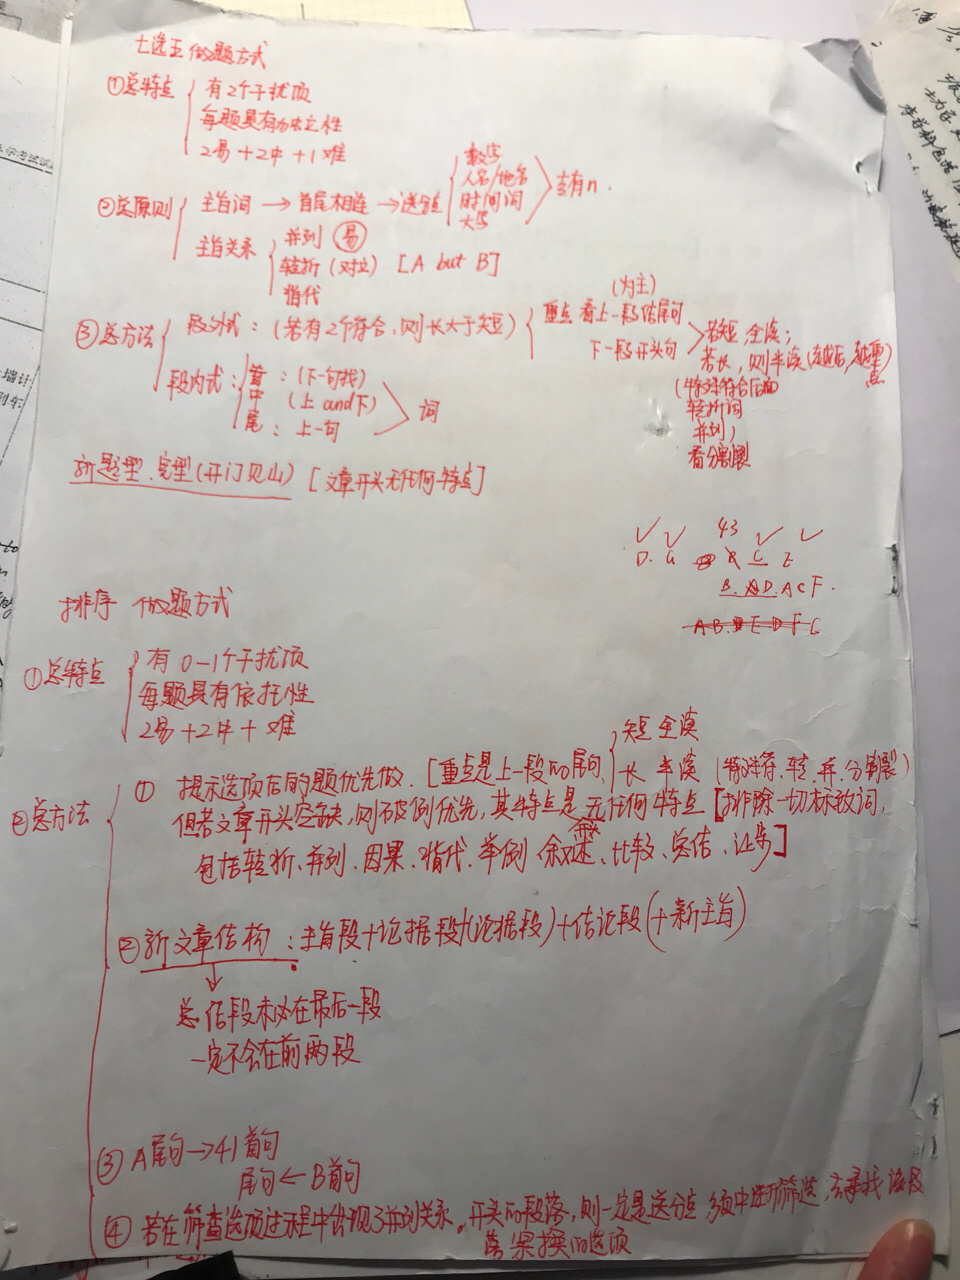 七选五 做题方式
①总特点
有2个干扰项
每题具有独立性
2易+2中+1难
②总原则
主旨词 → 首尾相连 → 送分点
数字
人名/地名
时间词
大写
主旨关系
并列 易
转折 (对立) [A but B]
指代
③总方法
段外式: (若有2个符合,则长大于短)
(为主)
重点 看上一段结尾句
下一段开头句
若短,全读;
若长,则半读(越后,越重点
(特殊符合后面
转折词
并列)
看分割裂
段内式:
首: (下一句找)
中 (上 and 下)
尾: 上一句
词
新题型.完型(开门见山) [文章开头无任何特点]
43
D. G B A C E
B. A D. A C F.
A B. B E D F C
排序 做题方式
①总特点
有 0-1个干扰项
每题具有依托性
2易+2中+1难
②总方法
① 提示选项后的题优先做. [重点是上一段的尾句,
短 全读
长 半读 (特殊符、转、并、分割裂)
但若文章开头空缺,则破例优先,其特点是 无任何特点 [排除一切标致词,
包括转折、并列、因果、指代、举例 叙述、比较、总结、让步]
②新文章结构: 主旨段+论据段+(论据段)+结论段(+新主旨)
总结段未必在最后一段
一定不会在前两段
③ A尾句→41首句
尾句←B首句
④ 若在筛查选项过程中出现了并列关系。开头的段落,则一定是送分点